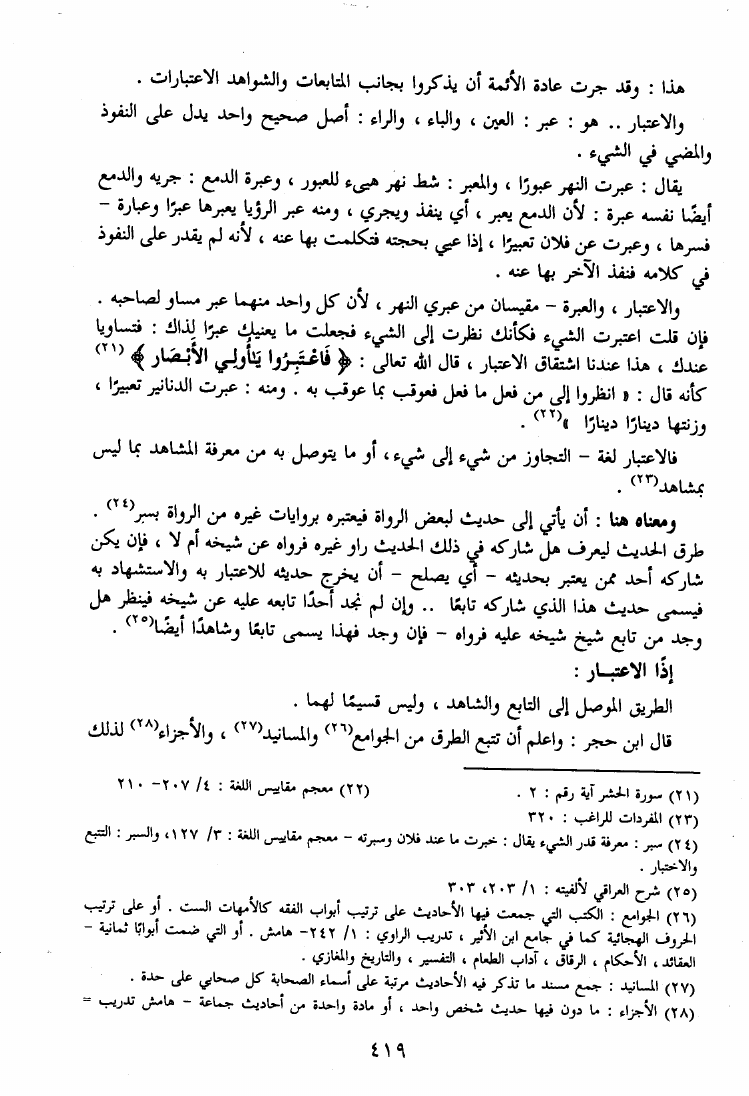 هذا : وقد جرت عادة الأئمة أن يذكروا بجانب المتابعات والشواهد الاعتبارات .
والاعتبار .. هو : عبر : العين ، والباء ، والراء : أصل صحيح واحد يدل على النفوذ
والمضي في الشيء .
يقال : عبرت النهر عبورًا ، والمعبر : شط نهر هييء للعبور ، وعبرة الدمع : جريه والدمع
أيضًا نفسه عبرة : لأن الدمع يعبر ، أي ينفذ ويجري ، ومنه عبر الرؤيا يعبرها عبرًا وعبارة –
فسرها ، وعبرت عن فلان تعبيرًا ، إذا عيي بحجته فتكلمت بها عنه ، لأنه لم يقدر على النفوذ
في كلامه فنفذ الآخر بها عنه .
والاعتبار ، والعبرة – مقيسان من عبري النهر ، لأن كل واحد منهما عبر مساو لصاحبه .
فإن قلت اعتبرت الشيء فكأنك نظرت إلى الشيء فجعلت ما يعنيك عبرًا لذاك : فتساويا
عندك ، هذا عندنا اشتقاق الاعتبار ، قال الله تعالى : ﴿ فَاعْتَبِرُوا يَـٰأُولِي الأَبْصَارِ ﴾ (٢١)
كأنه قال : « انظروا إلى من فعل ما فعل فعوقب بما عوقب به . ومنه : عبرت الدنانير تعبيرًا ،
وزنتها دينارًا دينارًا »(٢٢) .
فالاعتبار لغة – التجاوز من شيء إلى شيء، أو ما يتوصل به من معرفة المشاهد بما ليس
بمشاهد(٢٣) .
ومعناه هنا : أن يأتي إلى حديث لبعض الرواة فيعتبره بروايات غيره من الرواة بسبر(٢٤) .
طرق الحديث ليعرف هل شاركه في ذلك الحديث راو غيره فرواه عن شيخه أم لا ، فإن يكن
شاركه أحد ممن يعتبر بحديثه – أي يصلح – أن يخرج حديثه للاعتبار به والاستشهاد به
فيسمى حديث هذا الذي شاركه تابعًا .. وإن لم نجد أحدًا تابعه عليه عن شيخه فينظر هل
وجد من تابع شيخ شيخه عليه فرواه – فإن وجد فهذا يسمى تابعًا وشاهدًا أيضًا(٢٥) .
إذًا الاعتبـــار :
الطريق الموصل إلى التابع والشاهد ، وليس قسيمًا لهما .
قال ابن حجر : واعلم أن تتبع الطرق من الجوامع(٢٦) والمسانيد(٢٧) ، والأجزاء(٢٨) لذلك
(٢١) سورة الحشر آية رقم : ٢ . (٢٢) معجم مقاييس اللغة : ٤/ ٢٠٧– ٢١٠
(٢٣) المفردات للراغب : ٣٢٠
(٢٤) سبر : معرفة قدر الشيء يقال : خبرت ما عند فلان وسبرته – معجم مقاييس اللغة : ٣/ ١٢٧، والسبر : التتبع
والاختبار .
(٢٥) شرح العراقي لألفيته : ١/ ٢٠٣، ٣٠٣
(٢٦) الجوامع : الكتب التي جمعت فيها الأحاديث على ترتيب أبواب الفقه كالأمهات الست . أو على ترتيب
الحروف الهجائية كما في جامع ابن الأثير ، تدريب الراوي : ١/ ٢٤٢– هامش . أو التي ضمت أبوابًا ثمانية –
العقائد ، الأحكام ، الرقاق ، آداب الطعام ، التفسير ، والتاريخ والمغازي .
(٢٧) المسانيد : جمع مسند ما تذكر فيه الأحاديث مرتبة على أسماء الصحابة كل صحابي على حدة .
(٢٨) الأجزاء : ما دون فيها حديث شخص واحد ، أو مادة واحدة من أحاديث جماعة – هامش تدريب =
٤١٩